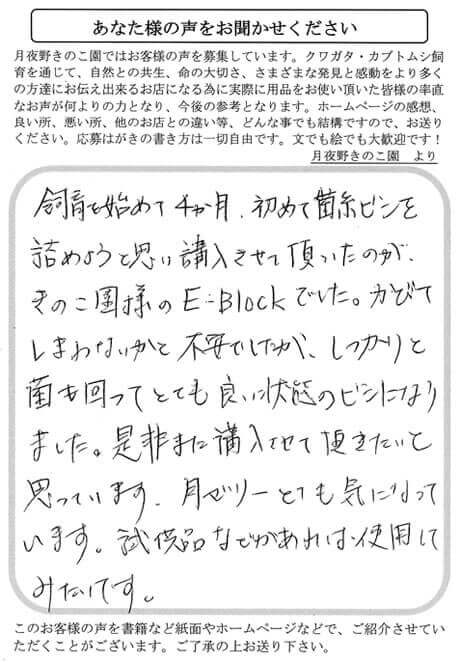 あなた様の声をお聞かせください
月夜野きのこ園ではお客様の声を募集しています。クワガタ・カブトムシ飼
育を通じて、自然との共生、命の大切さ、さまざまな発見と感動をより多く
の方達にお伝え出来るお店になる為に実際に用品をお使い頂いた皆様の率直
なお声が何よりの力となり、今後の参考となります。ホームページの感想、
良い所、悪い所、他のお店との違い等、どんな事でも結構ですので、お送り
ください。応募はがきの書き方は一切自由です。文でも絵でも大歓迎です！
月夜野きのこ園　より
飼育を始めて4か月、初めて菌糸ビンを
詰めようと思い購入させて頂いたのが、
きのこ園様のE-Blockでした。かびて
しまわないかと不安でしたが、しっかりと
菌も回ってとても良い状態のビンになり
ました。是非また購入させて頂きたいと
思っています。月ゼリーとても気になって
います。試供品などがあれば使用して
みたいです。
このお客様の声を書籍など紙面やホームページなどで、ご紹介させてい
ただくことがございます。ご了承の上お送り下さい。